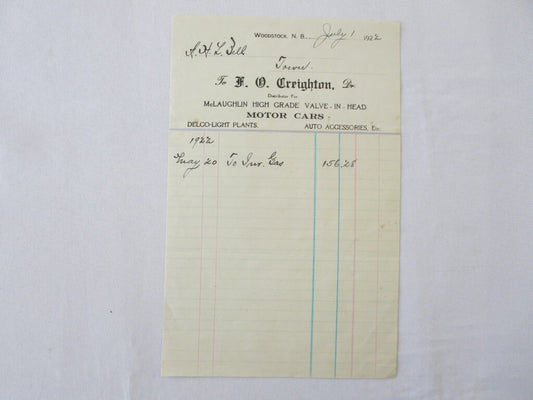 Woodstock, N. B., July 1 1922
A. H. L. Bell
Town.
To F. O. Creighton, Dr.
Distributor For
McLAUGHLIN HIGH GRADE VALVE-IN-HEAD
MOTOR CARS
DELCO-LIGHT PLANTS. AUTO ACCESSORIES, Etc.
1922
May 20 To Inv. Gas 156.28